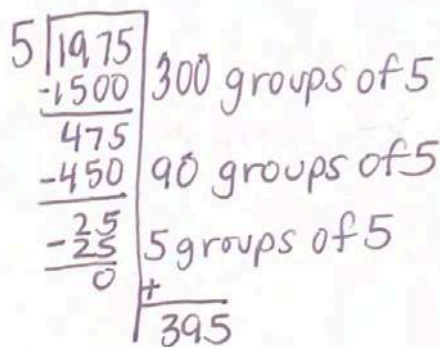 5 1975
-1500 300 groups of 5
475
-450 90 groups of 5
25
-25 5 groups of 5
0 +
395